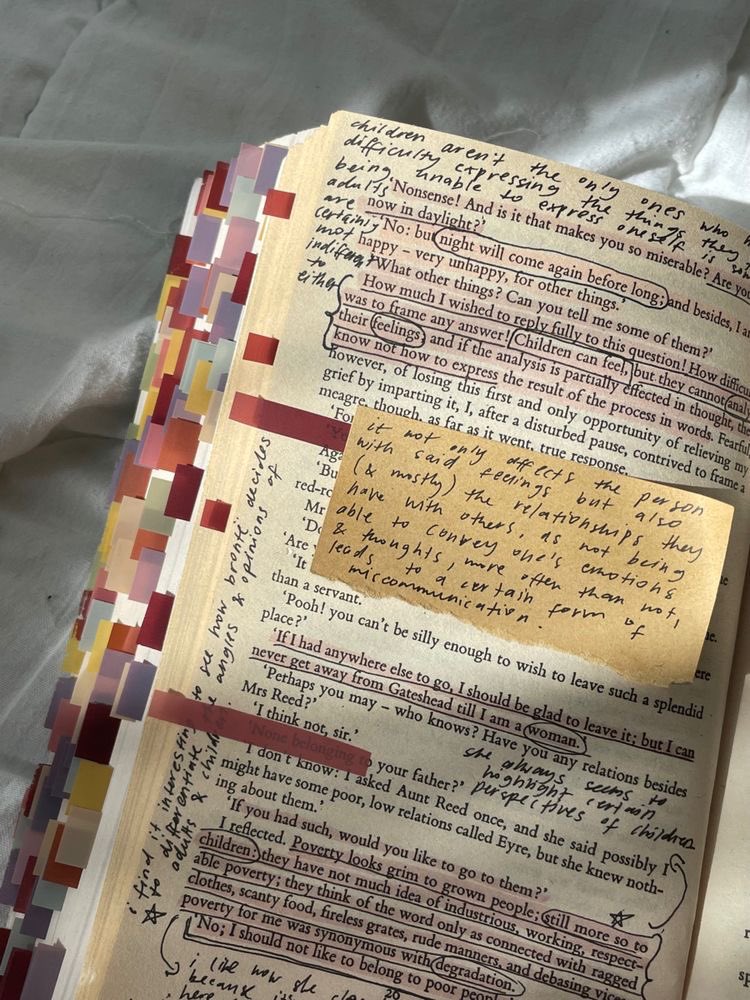 children aren't the only ones who h
difficulty expressing the things they
being unable to express oneself is
adults
are
certainly
not
indifferent
to
either
'Nonsense! And is it that makes you so miserable? Are you
now in daylight?'
'No: but night will come again before long; and besides, I am
happy – very unhappy, for other things.'
'What other things? Can you tell me some of them?'
How much I wished to reply fully to this question! How difficu
was to frame any answer! Children can feel, but they cannot anal
their feelings and if the analysis is partially effected in thought, the
know not how to express the result of the process in words. Fearful,
however, of losing this first and only opportunity of relieving my
grief by imparting it, I, after a disturbed pause, contrived to frame a
meagre, though, as far as it went, true response.
'For
Aga
'Bu
red-ro
Mr
'Do
'Are
'It
it not only affects the person
with said feelings but also
(& mostly) the relationships they
have with others, as not being
able to convey one's emotions
& thoughts, more often than not,
leads to a certain form of
miscommunication.
than a servant.
'Pooh! you can't be silly enough to wish to leave such a splendid
place?'
'If I had anywhere else to go, I should be glad to leave it; but I can
never get away from Gateshead till I am a woman.'
'Perhaps you may – who knows? Have you any relations besides
Mrs Reed?'
'I think not, sir.'
'None belonging to your father?'
I don't know: I asked Aunt Reed once, and she said possibly I
might have some poor, low relations called Eyre, but she knew noth-
ing about them.'
she always seems to
highlight certain
perspectives of children
'If you had such, would you like to go to them?'
I reflected. Poverty looks grim to grown people; still more so to
children; they have not much idea of industrious, working, respect-
able poverty; they think of the word only as connected with ragged
clothes, scanty food, fireless grates, rude manners, and debasing vice
poverty for me was synonymous with degradation.
'No; I should not like to belong to poor peopl
20
i find it interesting to see how brontë decides
to differentiate the angles & opinions of
adults & children
i like how she
because
here